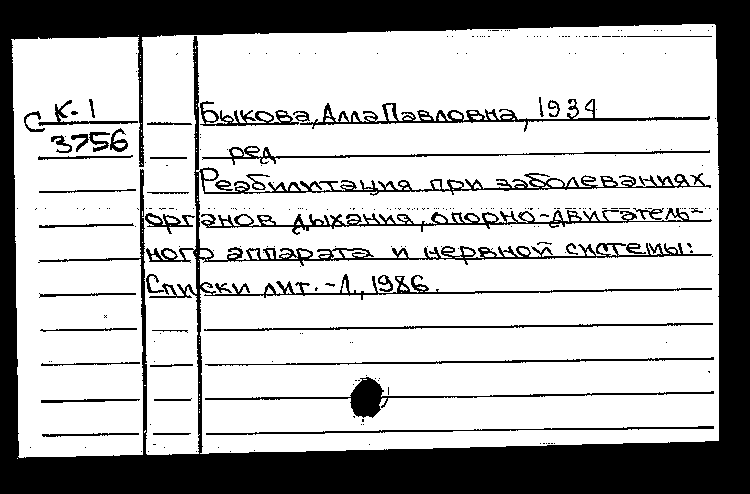 С К-1
3756
Быкова, Алла Павловна, 1934
ред.
Реабилитация при заболеваниях
органов дыхания, опорно-двигатель-
ного аппарата и нервной системы:
Списки лит. - Л., 1986.